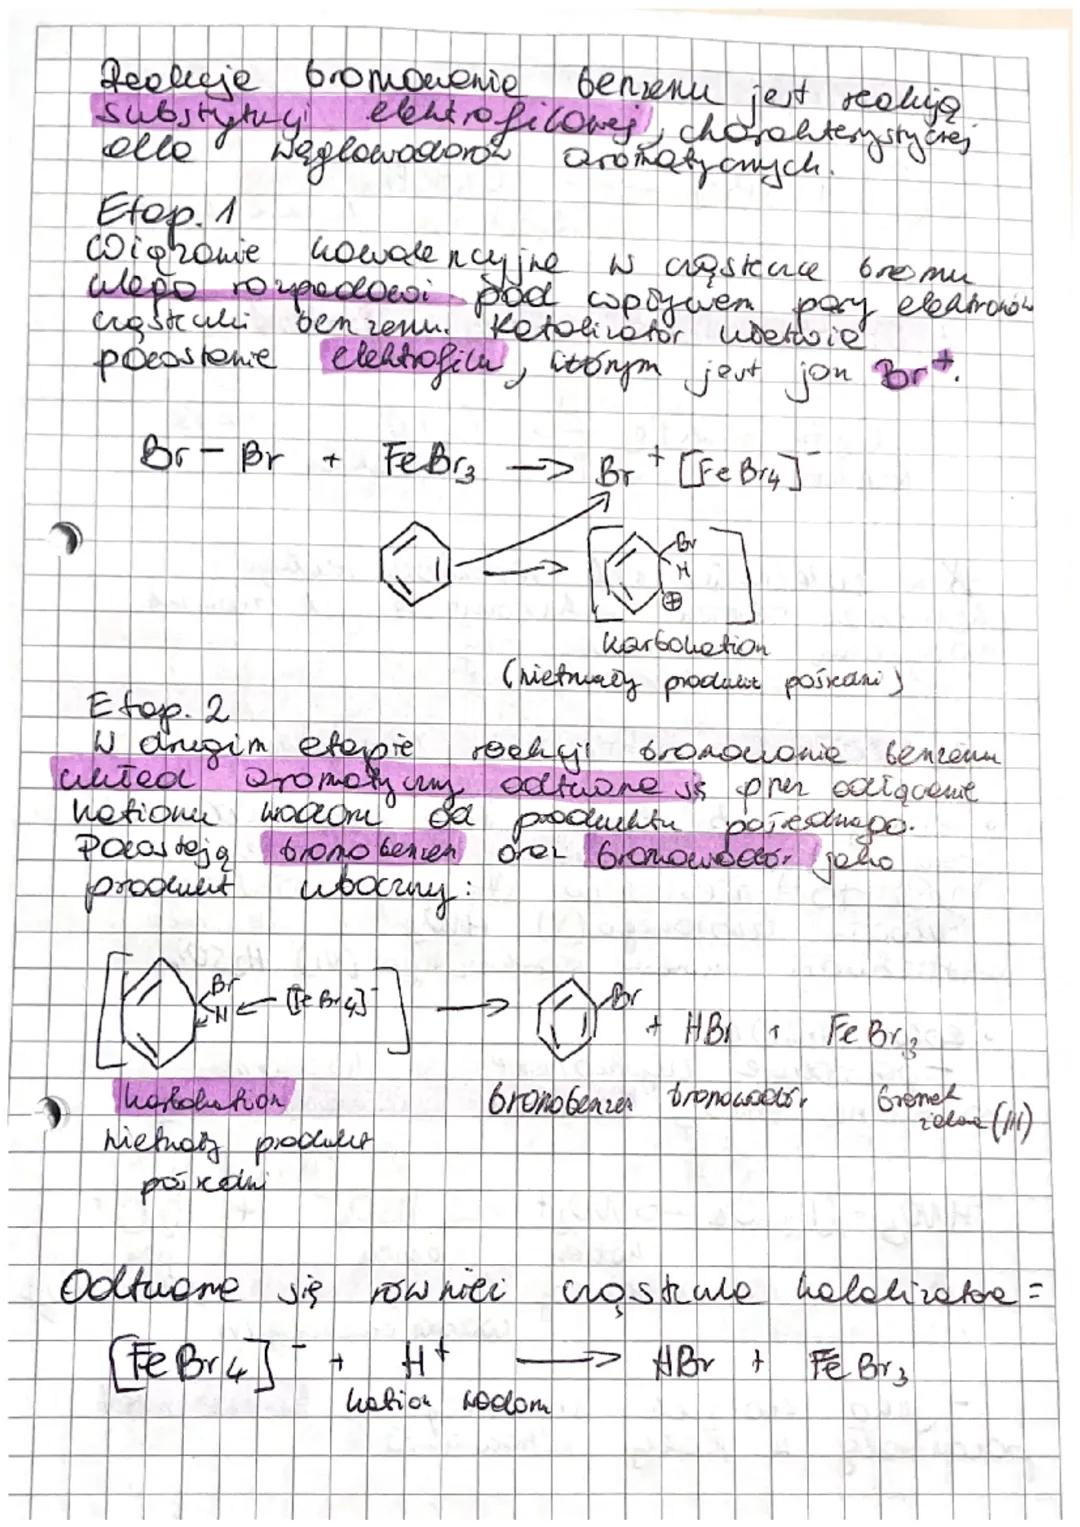 Reakcja bromowania benzenu jest reakcją
substytucji elektrofilowej, charakterystycznej
dla węglowodorów aromatycznych.
Etap. 1
Wiązanie kowalencyjne w cząsteczce bromu
ulega rozpadowi pod wpływem pary elektronów
cząsteczki benzenu. Katalizator ułatwia
powstanie elektrofilu, którym jest jon Br⁺.
Br – Br + FeBr₃ → Br⁺ [FeBr₄]⁻
Br
H
⊕
karbokation
(nietrwały produkt pośredni)
Etap. 2
W drugim etapie reakcji bromowania benzenu
układ aromatyczny odtwarza się przez odłączenie
kationu wodoru od produktu pośredniego.
Powstają bromobenzen oraz bromowodór jako
produkt uboczny:
Br
H ← [FeBr₄]⁻ → Br + HBr + FeBr₃
karbokation bromobenzen bromowodór bromek
żelaza (III)
nietrwały produkt
pośredni
Odtwarza się również cząsteczka katalizatora =
[FeBr₄]⁻ + H⁺ → HBr + FeBr₃
kation wodoru